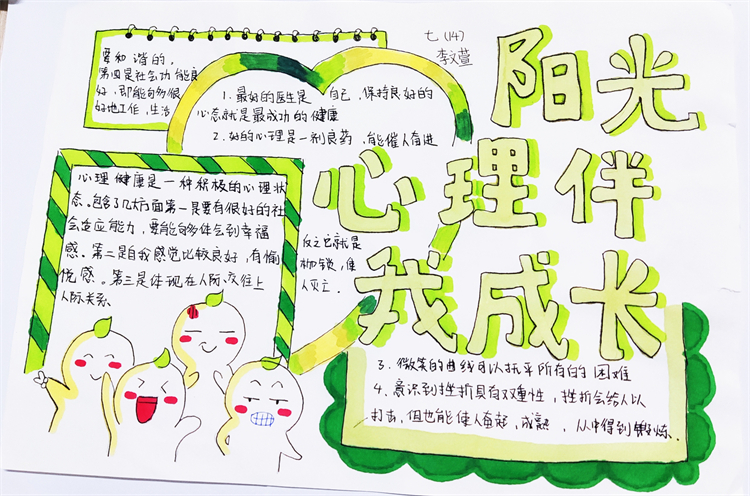 七(14)
李文萱
阳光
心理伴
我成长
要和谐的,
第四是社会功能良
好,即能够很
好地工作,生活
1. 最好的医生是自己,保持良好的
心态就是最成功的健康
2. 好的心理是一剂良药,能催人奋进
反之它就是
枷锁,催
人灭亡.
心理健康是一种积极的心理状
态。包含了几大方面第一是要有很好的社
会适应能力,要能够体会到幸福
感。第二是自我感觉比较良好,有愉
悦感。第三是体现在人际交往上
人际关系
3. 微笑的曲线可以抚平所有的困难
4. 意识到挫折具有双重性,挫折会给人以
打击,但也能使人奋起,成熟,从中得到锻炼.